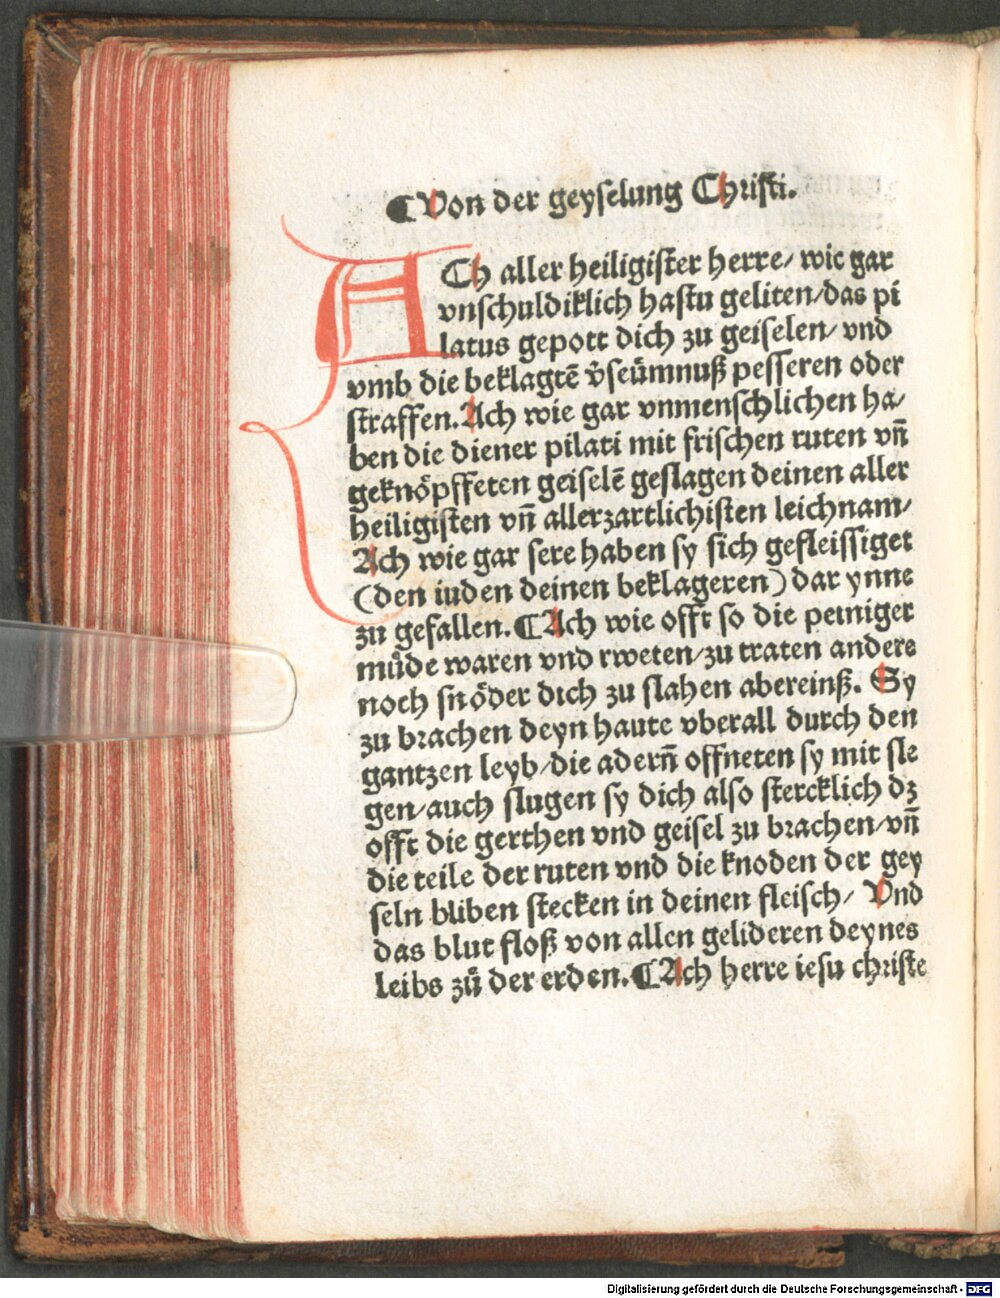 ¶Von der geyselung Christi.
ACh aller heiligister herre/ wie gar
vnschuldiklich hastu geliten/das pi
latus gepott dich zu geiselen/ vnd
vmb die beklagtē v̄seümnuß pesseren oder
straffen. Ach wie gar vnmenschlichen ha/
ben die diener pilati mit frischen ruten vn̄
geknöpffeten geiselē geslagen deinen aller
heiligisten vn̄ allerzartlichisten leichnam/
Ach wie gar sere haben sy sich gefleissiget
(den iuden deinen beklageren) dar ynne
zu gefallen. ¶Ach wie offt so die peiniger
můde waren vnd rweten/zu traten andere
noch snöder dich zu slahen abereinß. Sy
zu brachen deyn haute vberall durch den
gantzen leyb/die adern̄ offneten sy mit sle
gen/auch slugen sy dich also stercklich dz
offt die gerthen vnd geisel zu brachen/vn̄
die teile der ruten vnd die knoden der gey
seln bliben stecken in deinen fleisch/ Vnd
das blut floß von allen gelideren deynes
leibs zů der erden. ¶Ach herre iesu christe
Digitalisierung gefördert durch die Deutsche Forschungsgemeinschaft - DFG